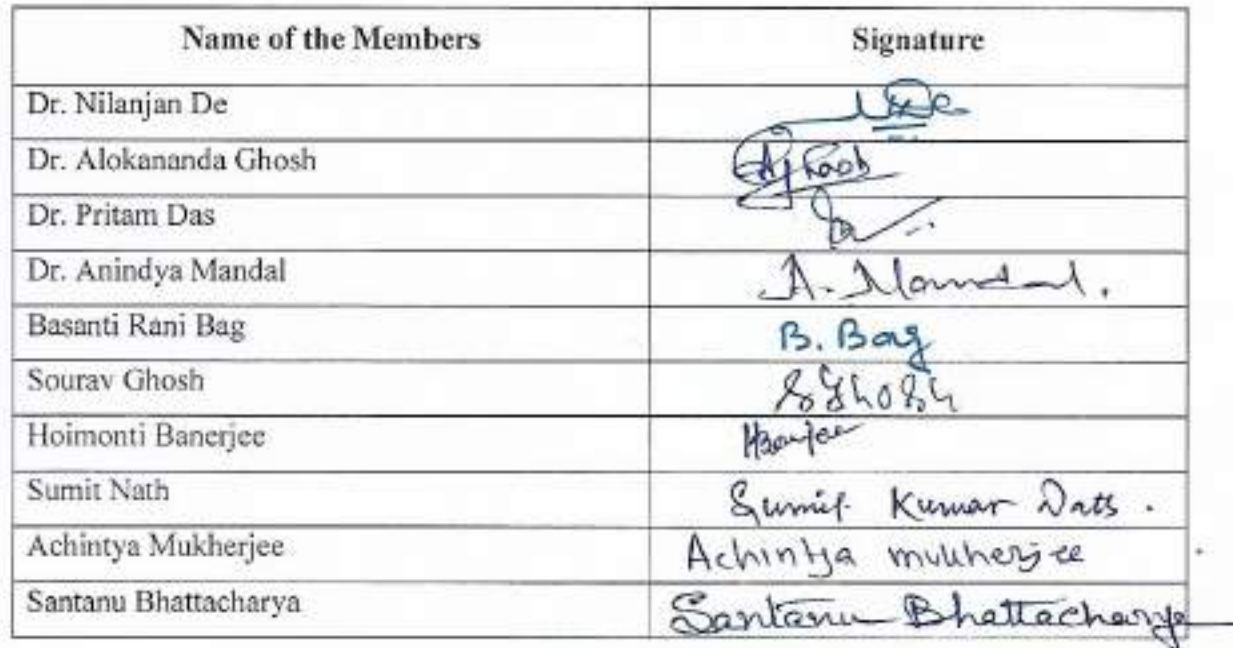 Name of the Members Signature
Dr. Nilanjan De De
Dr. Alokananda Ghosh AGhosh
Dr. Pritam Das
Dr. Anindya Mandal A. Mandal.
Basanti Rani Bag B. Bag
Sourav Ghosh SGhosh
Hoimonti Banerjee HBanerjee
Sumit Nath Sumit Kumar Nath.
Achintya Mukherjee Achintya mukherjee
Santanu Bhattacharya Santanu Bhattacharya